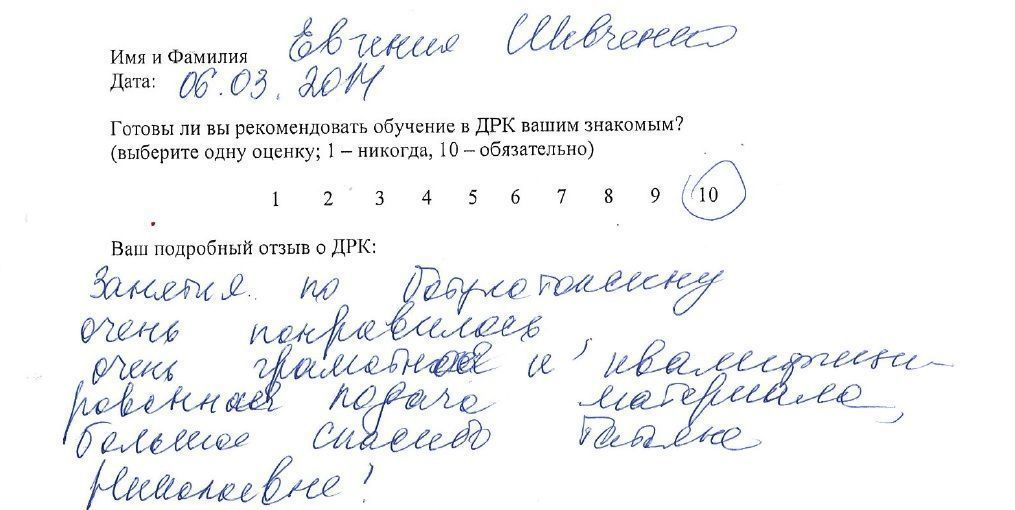 Имя и Фамилия Евгения Шевченко
Дата: 06.03.2014
Готовы ли вы рекомендовать обучение в ДРК вашим знакомым?
(выберите одну оценку; 1 – никогда, 10 – обязательно)
1 2 3 4 5 6 7 8 9 10
Ваш подробный отзыв о ДРК:
Занятия по ботулотоксину
очень понравилось,
очень грамотная и квалифици-
рованная подача материала,
большое спасибо Татьяне
Николаевне!